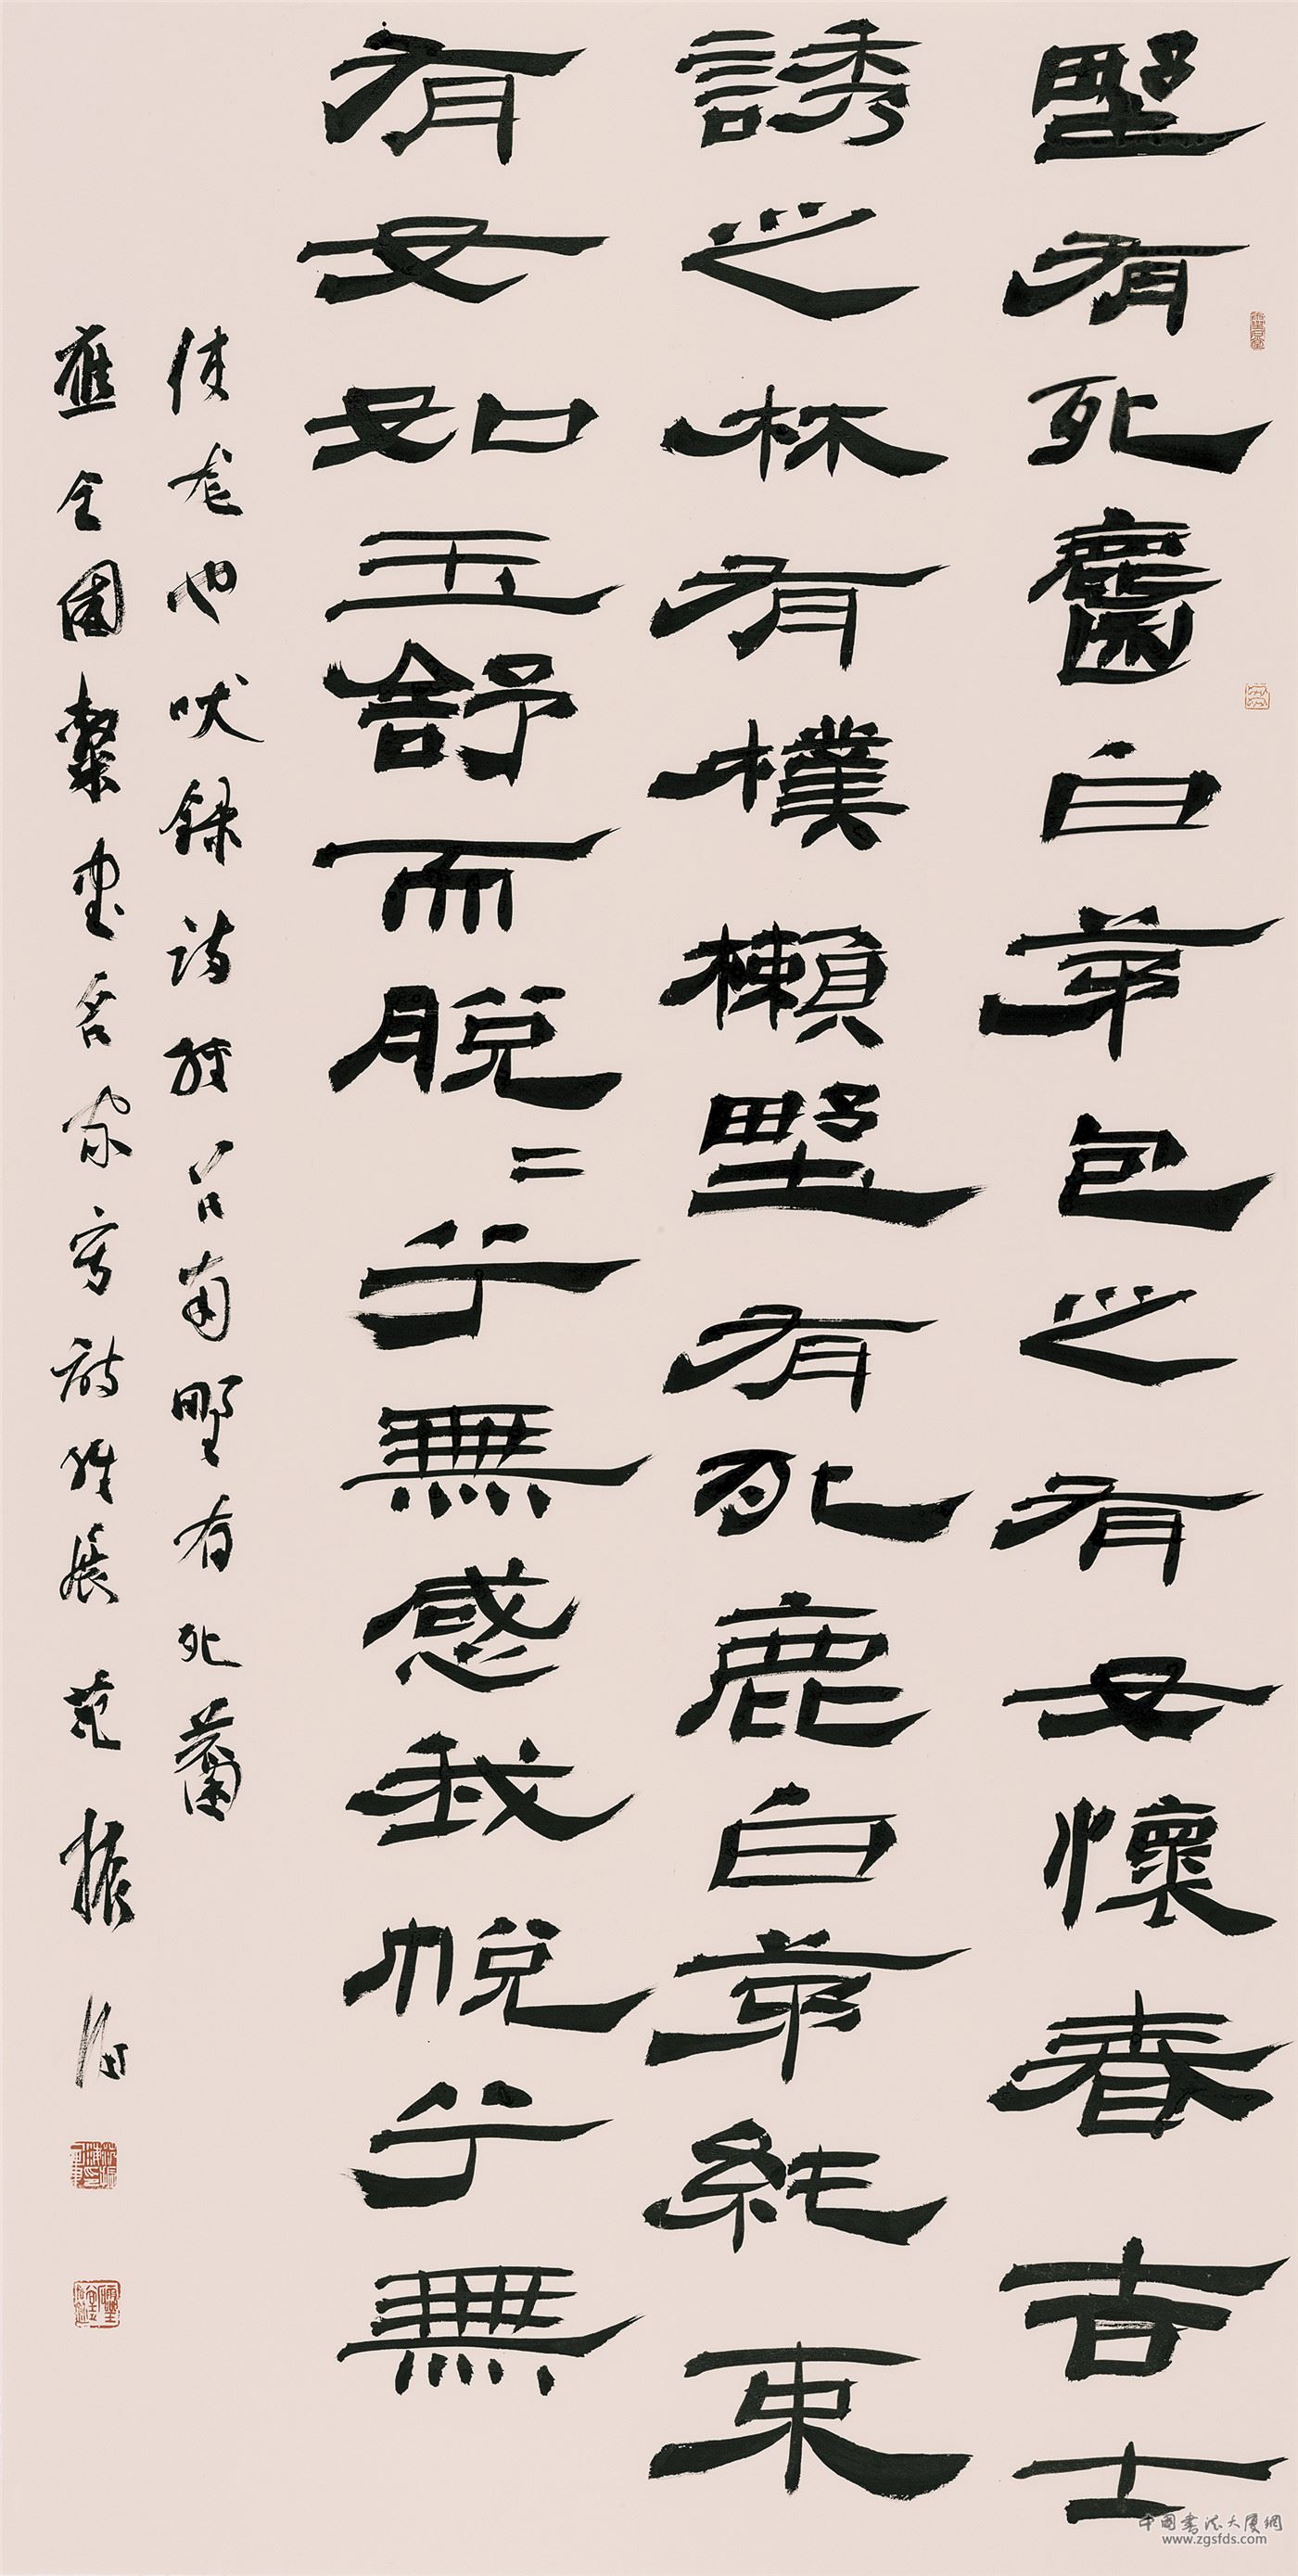 野有死麕白茅包之有女懷春吉士
誘之林有樸櫴野有死鹿白茅純束
有女如玉舒而脫〻兮無感我帨兮無
使尨也吠錄詩經召南野有死麕
應全國名家寫詩經展范振海
中国書法大厦網
www.zgsfds.com